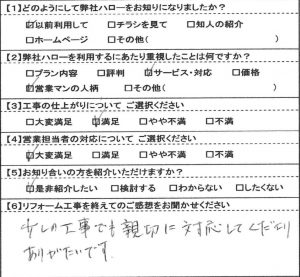 【1】どのようにして弊社ハローをお知りになりましたか?
☑以前利用して □チラシを見て □知人の紹介
□ホームページ □その他( )
【2】弊社ハローを利用するにあたり重視したことは何ですか?
□プラン内容 □評判 ☑サービス・対応 □価格
☑営業マンの人柄 □その他( )
【3】工事の仕上がりについて ご選択ください
□大変満足 ☑満足 □やや不満 □不満
【4】営業担当者の対応について ご選択ください
☑大変満足 □満足 □やや不満 □不満
【5】お知り合いの方を紹介いただけますか?
☑是非紹介したい □検討する □わからない □したくない
【6】リフォーム工事を終えてのご感想をお聞かせください
少しの工事でも親切に対応してくださり
ありがたいです。